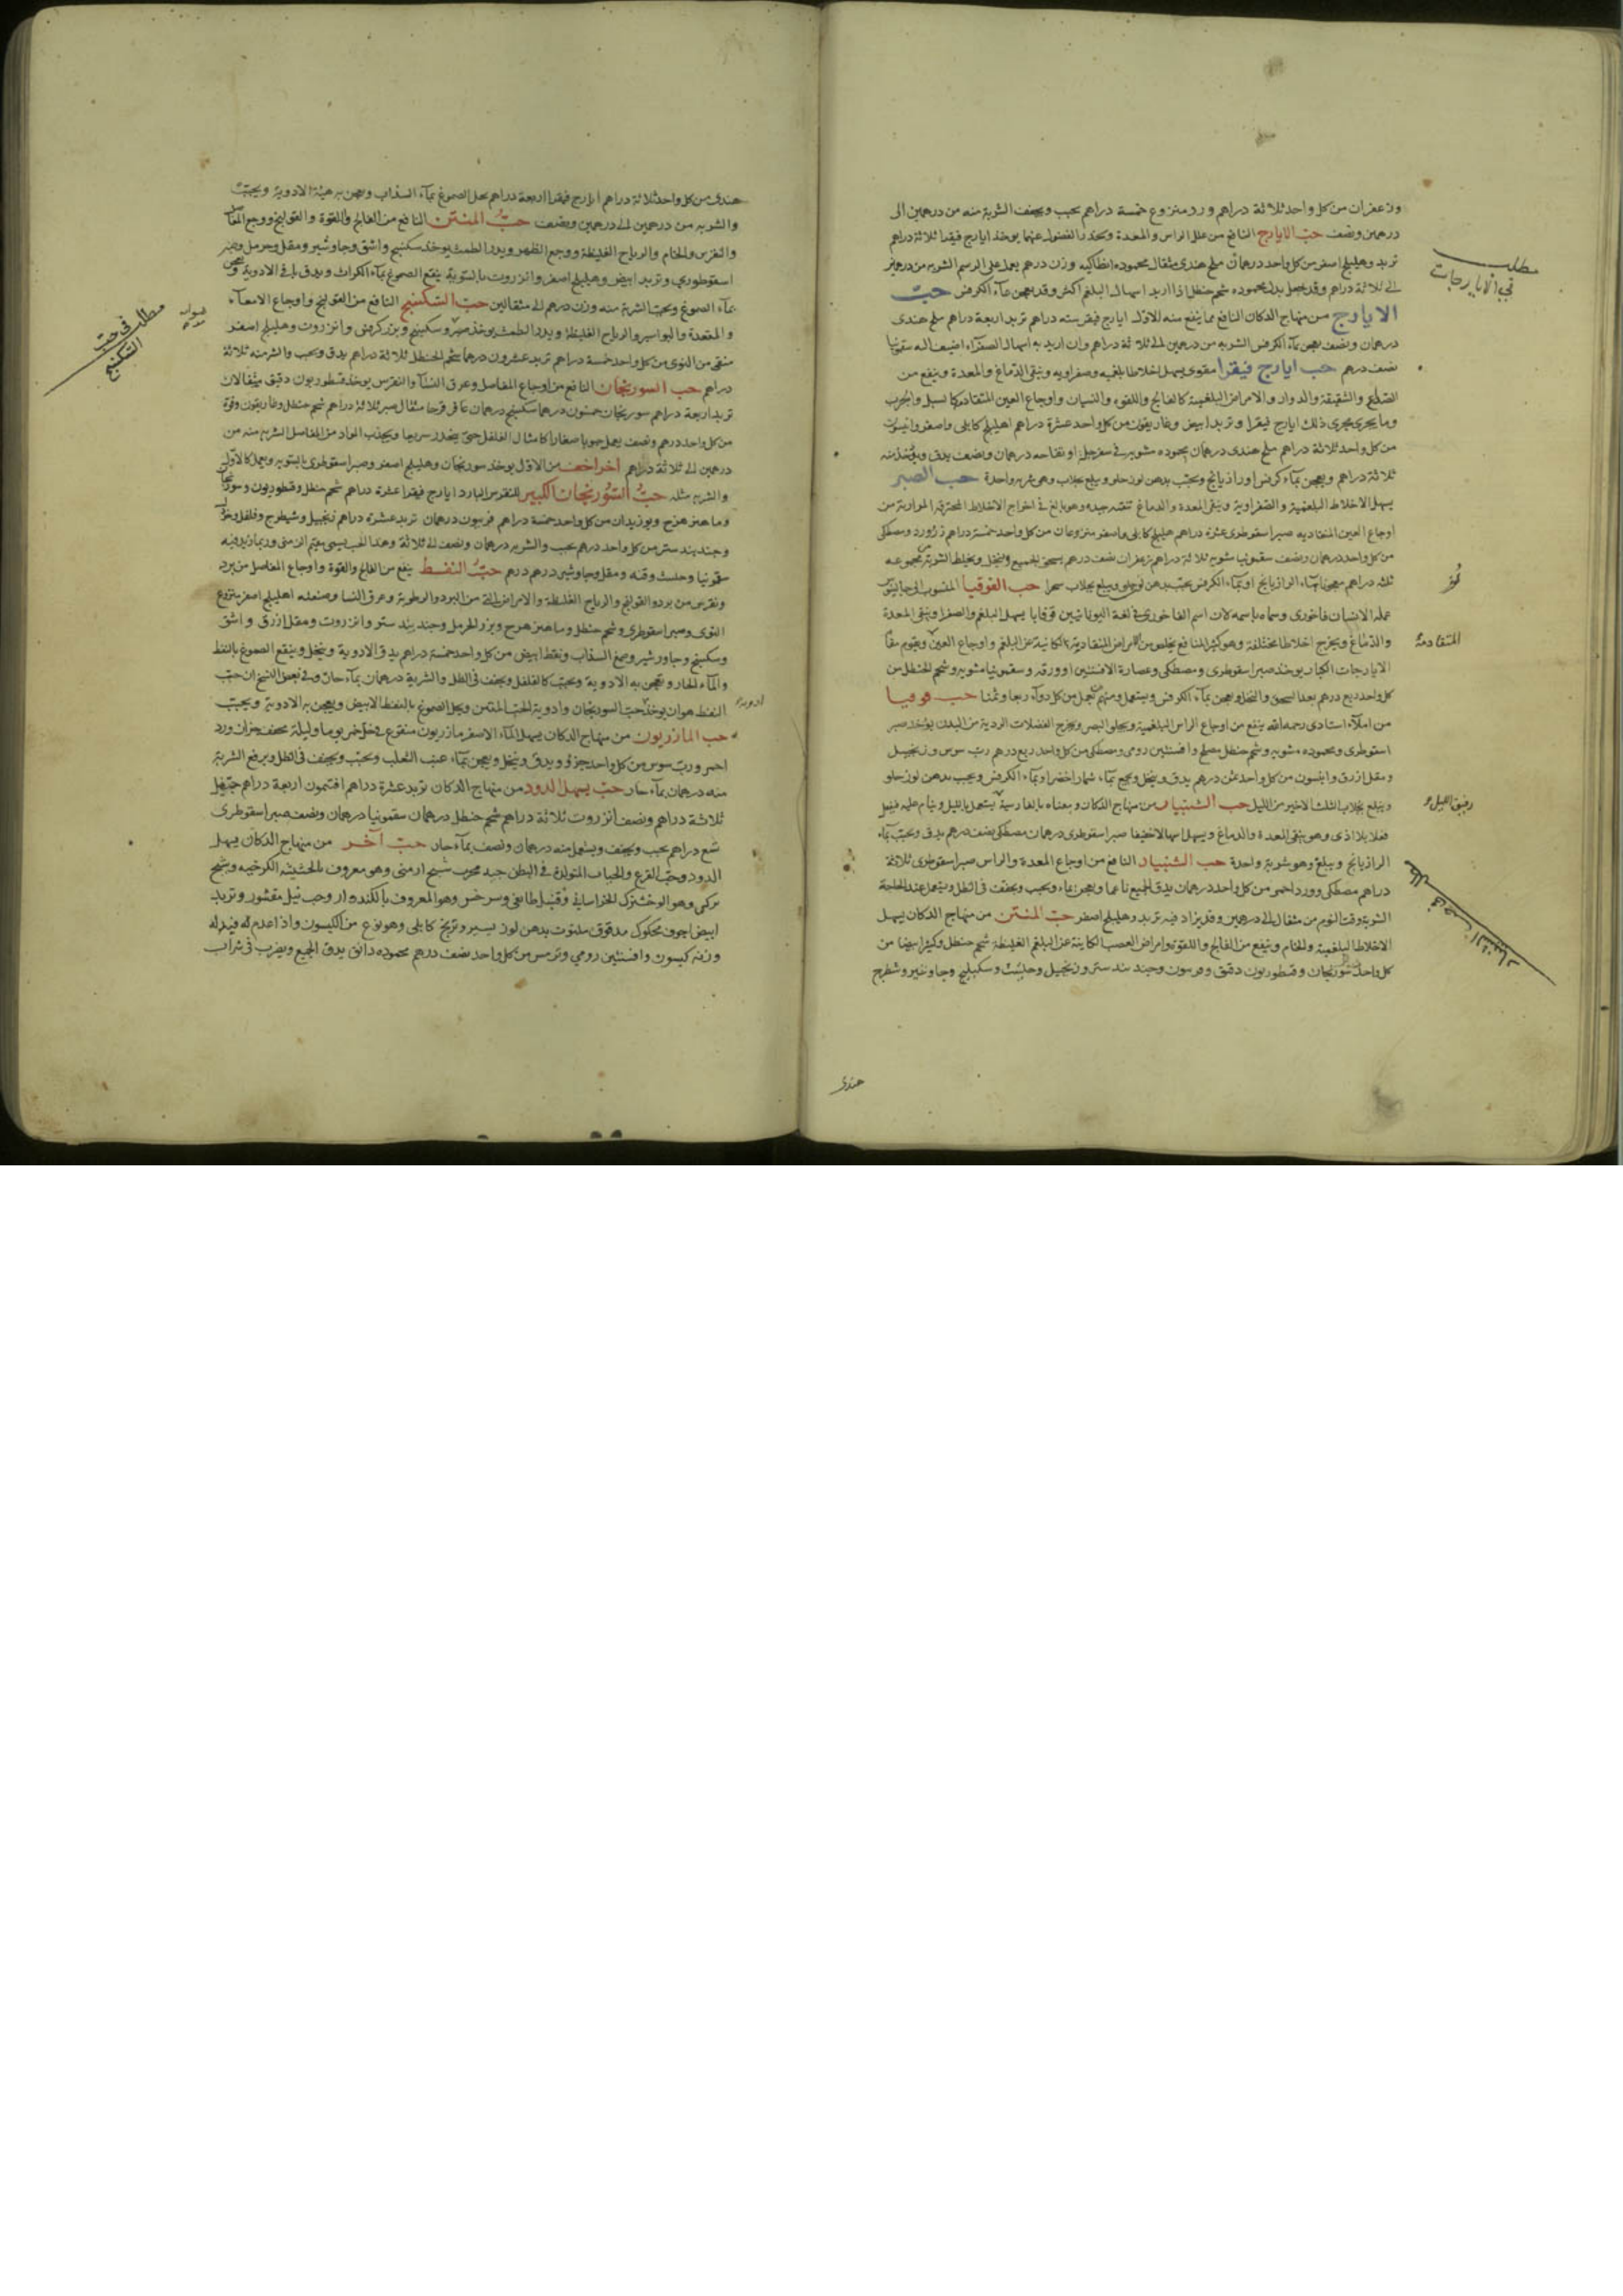 وزعفران من كل واحد ثلاثة دراهم ورد منزوع خمسة دراهم يحبب ويجفف الشربة منه من درهمين الى
درهمين ونصف حب الايارج النافع من علل الراس والمعدة ويحدر الفضول عنهما يوخذ ايارج فيقرا ثلاثة دراهم
تربد وهليلج اصفر من كل واحد درهمان ملح هندى مثقال محموده انطاكيه وزن درهم يعمل على الرسم الشربه من درهمين
الى ثلاثة دراهم وقد يجعل بدل محموده شحم حنظل اذا اريد اسهال البلغم اكثر وقد يعجن بمآء الكرفس حب
الايارج من منهاج الدكان النافع مما ينفع منه الاول ايارج فيقر سته دراهم تربد اربعة دراهم ملح هندى
درهمان ونصف يعجن بمآء الكرفس الشربه من درهمين الى ثلاثة دراهم وان اريد به اسهال الصفرآء اضيف اليه سقمونيا
نصف درهم حب ايارج فيقرا مقوى يسهل اخلاطا بلغميه وصفراويه وينقى الدماغ والمعدة وينفع من
الصداع والشقيقة والدوار والامراض البلغمية كالفالج واللقوه والنسيان واوجاع العين المتقادمه كالسبل والجرب
وما يجرى مجرى ذلك ايارج فيقرا وتربد ابيض وغاريقون من كل واحد عشرة دراهم اهليلج كابلى واصفر وانيسون
من كل واحد ثلاثة دراهم ملح هندى درهمان محموده مشويه فى سفرجل او تفاحه درهمان ونصف يدق ويوخذ منه
ثلاثة دراهم ويعجن بمآء كرفس او رازيانج ويحبب بدهن لوز حلو ويبلع بجلاب وهى شربه واحدة حب الصبر
يسهل الاخلاط البلغمية والصفراوية وينقى المعدة والدماغ تنقيه جيده وهو بالغ فى اخراج الاخلاط المحترقه المواد من
اوجاع العين المتقادمه صبر اسقوطرى عشرة دراهم هليلج كابلى واصفر منزوعان من كل واحد خمسة دراهم زرورد ومصطكى
من كل واحد درهمان ونصف سقمونيا مشويه ثلاثة دراهم زعفران نصف درهم يسحق الجميع وينخل ويخلط الشربة من مجموعه
ثلثه دراهم معجونا بمآء الرازيانج او بمآء الكرفس يحبب بدهن لوز حلو ويبلع بجلاب سحرا حب القوقيا المنسوب الى جالينوس
عمله لانسان فاخورى وسماه باسمه لان اسم الفاخورى فى لغة اليونانيين قوقايا يسهل البلغم والصفرا وينقى المعدة
والدماغ ويخرج اخلاطا مختلفة وهو كثير المنافع يخلص من الامراض المتقادمة الكائنية عن البلغم واوجاع العين ويقوم مقام
الايارجات الكبار يوخذ صبر اسقوطرى ومصطكى وعصارة الافسنتين او ورقه وسقمونيا مشويه وشحم الحنظل من
كل واحد ربع درهم بعد السحق والنخل ويعجن بمآء الكرفس ويستعمل ومنهم من يعمل من كل دوآء ربعا وثمنا حب قوقيا
من املآء استادى رحمه الله ينفع من اوجاع الراس البلغمية ويجلو البصر ويخرج الفضلات الردية من البدن يوخذ صبر
اسقوطرى ومحموده مشويه وشحم حنظل مصلح وافسنتين رومى ومصطكى من كل واحد ربع درهم رب سوس وزنجبيل
ومقل ازرق وانيسون من كل واحد ثمن درهم يدق وينخل ويعجن بمآء شمار اخضر او بمآء الكرفس ويحبب بدهن لوز حلو
ويبلع بجلاب الثلث الاخير من الليل حب الشبيار من منهاج الدكان ومعناه بالفارسية يستعمل بالليل وينام عليه فيفعل
فعلا بلا اذى وهو ينقى المعدة والدماغ ويسهل اسهالا خفيفا صبر اسقوطرى درهمان مصطكى نصف درهم يدق ويحبب بمآء
الرازيانج ويبلع وهو شربة واحدة حب الشبيار النافع من اوجاع المعدة والراس صبر اسقوطرى ثلاثة
دراهم مصطكى وورد احمر من كل واحد درهمان يدق الجميع ناعما ويعجن بمآء ويحبب ويجفف فى الظل ويستعمل عند الحاجة
الشربة وقت النوم من مثقال الى درهمين وقد يزاد فيه تربد وهليلج اصفر حب المنتن من منهاج الدكان يسهل
الاخلاط البلغمية والخام وينفع من الفالج واللقوة وامراض العصب الكاينة عن البلغم الغليظ شحم حنظل وكثيرا بيضا من
كل واحد سورنجان وقنطوريون دقيق وجند بيدستر وزنجبيل وحلتيت وسكبينج وجاوشير وشيطرج
هندى
مطلب
فى الايارجات
المتقادمة
رفيق الليل
هندى من كل واحد ثلاثة دراهم ايارج فيقرا اربعة دراهم يحل الصموغ بمآء السذاب ويعجن به بقية الادوية ويحبب
والشربه من درهمين الى درهمين ونصف حب المنتن النافع من الفالج واللقوة والقولنج ووجع المفاصل
والنقرس والخام والرياح الغليظة ووجع الظهر ويدر الطمث يوخذ سكبينج واشق وجاوشير ومقل وحرمل وصبر
اسقوطرى وتربد ابيض وهليلج اصفر وانزروت بالسوية ينقع الصموغ بمآء الكراث ويدق باقى الادوية ويعجن
بمآء الصموغ ويحبب الشربة منه وزن درهم الى مثقالين حب السكبينج النافع من القولنج واوجاع الامعآء
والمقعدة والبواسير والرياح الغليظة ويدر الطمث يوخذ صبر وسكبينج وبزر كرفس وانزروت وهليلج اصفر
منقى من النوى من كل واحد خمسة دراهم تربد عشرون درهما شحم الحنظل ثلاثة دراهم يدق ويحبب والشربه منه ثلاثة
دراهم حب السورنجان النافع من اوجاع المفاصل وعرق النسآ والنقرس يوخذ قنطوريون دقيق مثقالان
تربد اربعة دراهم سورنجان خمسون درهما سكبينج درهمان عاقرقرحا مثقال صبر ثلاثة دراهم شحم حنظل وغاريقون وفوة
من كل واحد درهم ونصف يعمل حبوبا صغارا كامثال الفلفل حتى ينحدر سريعا ويجذب المواد من المفاصل الشربه منه من
درهمين الى ثلاثة دراهم اخر اخف من الاول يوخذ سورنجان وهليلج اصفر وصبر اسقوطرى بالسويه ويعمل كالاول
والشربه مثله حب السورنجان الكبير للنقرس البارد ايارج فيقرا عشرة دراهم شحم حنظل وقنطوريون وسورنجان
وماهيزهرج وبوزيدان من كل واحد خمسة دراهم فربيون درهمان تربد عشرة دراهم زنجبيل وشيطرج وفلفل
وجند بيدستر من كل واحد درهم يحبب والشربه درهمان ونصف الى ثلاثة وهذا الحب يسمى مقيم الزمنى وربما زيد فيه
سقمونيا وحلتيت وقنه ومقل وجاوشير درهم درهم حب النفط ينفع من الفالج واللقوة واوجاع المفاصل من برد
ونقرس من برد والقولنج والرياح الغليظة والامراض من البرد والرطوبة وعرق النسا وصنعته اهليلج اصفر منزوع
النوى وصبر اسقوطرى وشحم حنظل وماهيزهرج وبزر الحرمل وجند بيدستر وانزروت ومقل ازرق واشق
وسكبينج وجاوشير وصمغ السذاب ونفط ابيض من كل واحد خمسة دراهم يدق الادوية وينخل وينقع الصموغ بالنفط
والمآء الحار ويعجن به الادوية ويحبب كالفلفل ويجفف فى الظل والشربة درهمان بمآء حار وفى بعض النسخ ان حب
النفط هو ان يوخذ حب السورنجان وادوية الحب المنتن ويحل الصموغ بالنفط الابيض ويعجن به الادوية ويحبب
حب المازريون من منهاج الدكان يسهل المآء الاصفر مازريون منقوع فى خل خمر يوما وليلة مجفف جزآن ورد
احمر ورب سوس من كل واحد جزؤ ويدق وينخل ويعجن بمآء عنب الثعلب ويحبب ويجفف فى الظل ويرفع الشربة
منه درهمان بمآء حار حب يسهل الدود من منهاج الدكان تربد عشرة دراهم افتيمون اربعة دراهم
ثلاثة دراهم ونصف انزروت ثلاثة دراهم شحم حنظل درهمان سقمونيا درهمان ونصف صبر اسقوطرى
تسع دراهم يحبب ويجفف ويستعمل منه درهمان ونصف بمآء حار حب آخر من منهاج الدكان يسهل
الدود وحب القرع والحيات المتولدة فى البطن جيد مجرب شيح ارمنى وهو معروف بالحشيشه الكرخيه وشيح
تركى وهو الوخشيزك الخراسانى وقنبيل طايفى وسرخس وهو المعروف بالكنددار وحب نيل مقشور وتربد
ابيض اجوف محكوك مدقوق ملتوت بدهن لوز يسير وبرنج كابلى وهو نوع من الكيسون واذا اعدم له فبدله
وزنه كيسون وافسنتين رومي وترمس من كل واحد نصف درهم محموده دانق يدق الجميع ويضرب فى شراب
مطلب فى حب
السكبينج
ادوية